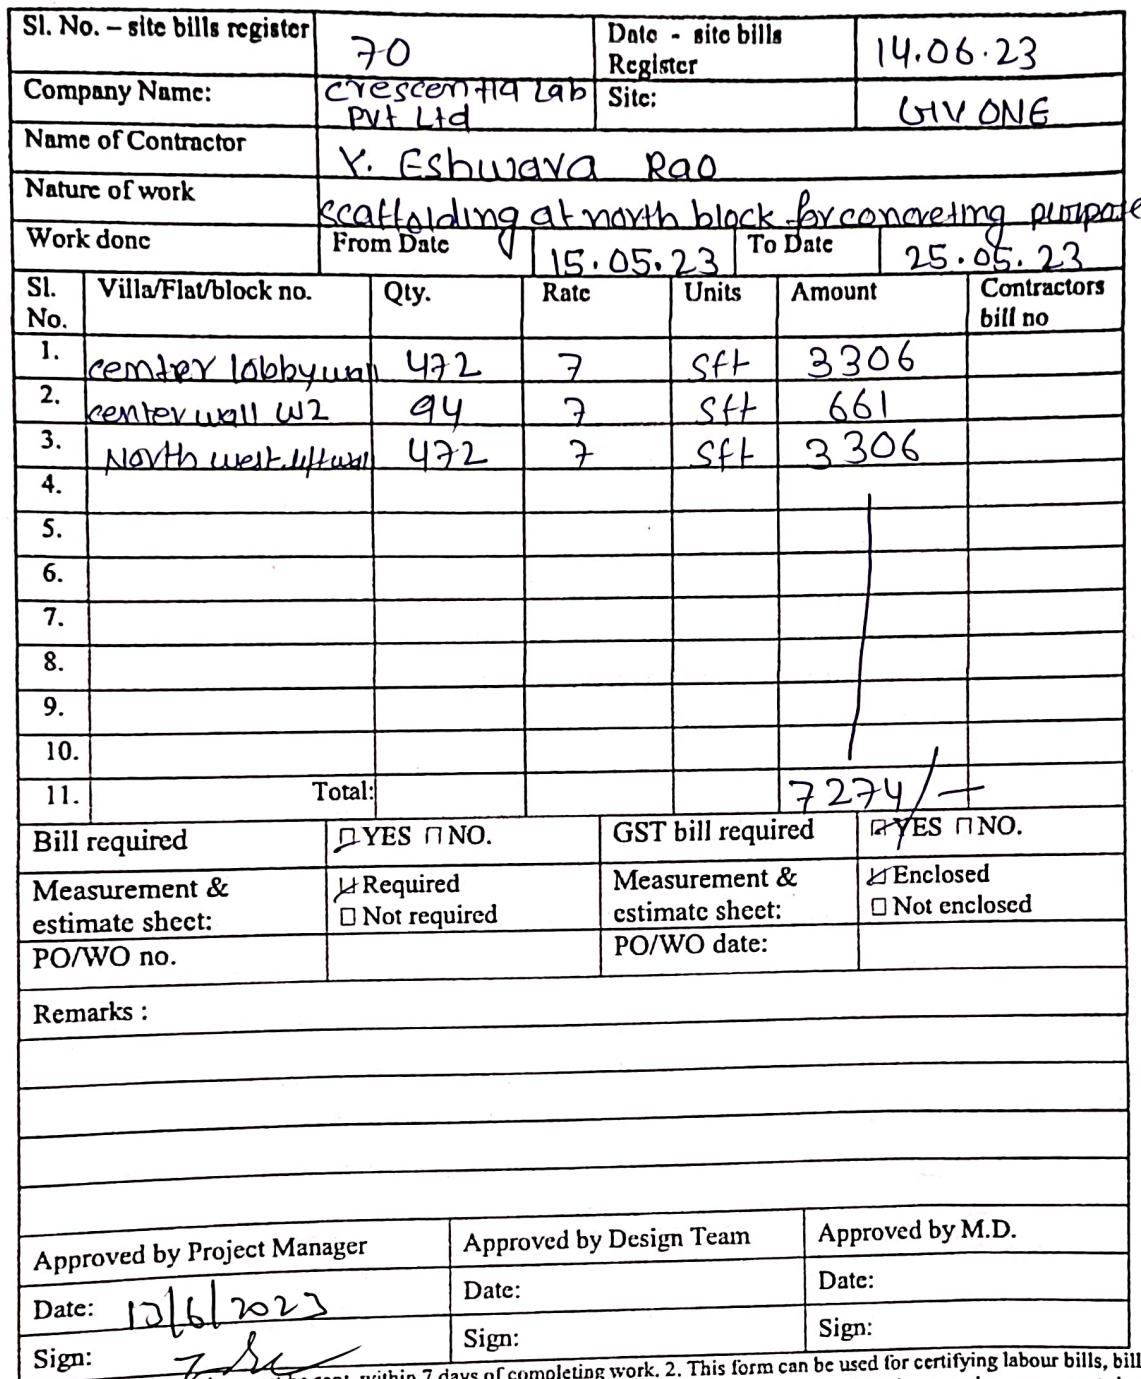 Sl. No. – site bills register 70 Date - site bills Register 14.06.23
Company Name: Crescentia Lab Pvt Ltd Site: GIV ONE
Name of Contractor Y. Eshwara Rao
Nature of work scaffolding at north block for concreting purpose
Work done From Date 15.05.23 To Date 25.05.23
Sl. No. Villa/Flat/block no. Qty. Rate Units Amount Contractors bill no
1. center lobby wall 472 7 Sft 3306
2. center wall W2 94 7 Sft 661
3. North west lift wall 472 7 Sft 3306
4.
5.
6.
7.
8.
9.
10.
11. Total: 7274/-
Bill required YES NO. GST bill required YES NO.
Measurement & estimate sheet: Required Measurement & estimate sheet: Enclosed
Not required Not enclosed
PO/WO no. PO/WO date:
Remarks :
Approved by Project Manager Approved by Design Team Approved by M.D.
Date: 13/6/2023 Date: Date:
Sign: Sign: Sign:
within 7 days of completing work. 2. This form can be used for certifying labour bills, bill